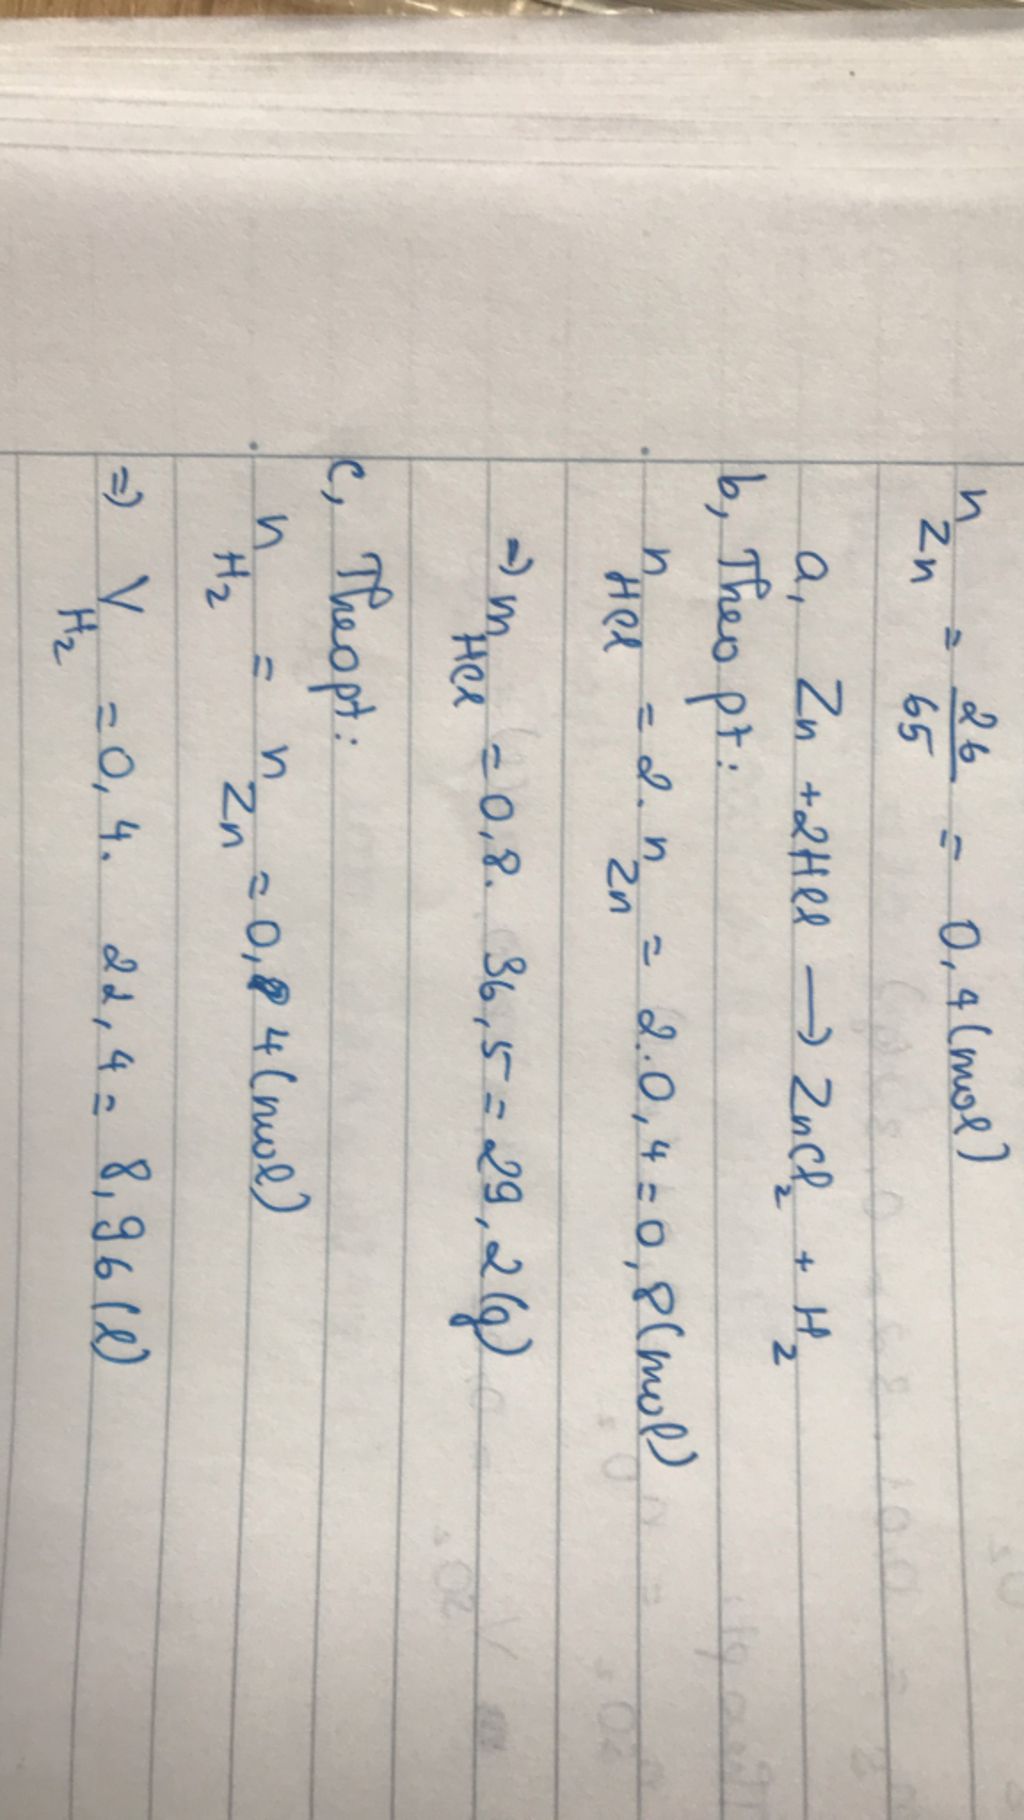 n Zn = 26/65 = 0,4 (mol)
a, Zn + 2HCl → ZnCl2 + H2
b, Theo pt:
n HCl = 2. n Zn = 2.0,4 = 0,8 (mol)
=) m HCl = 0,8. 36,5 = 29,2 (g)
c, Theo pt:
n H2 = n Zn = 0,4 (mol)
=) V H2 = 0,4. 22,4 = 8,96 (l)